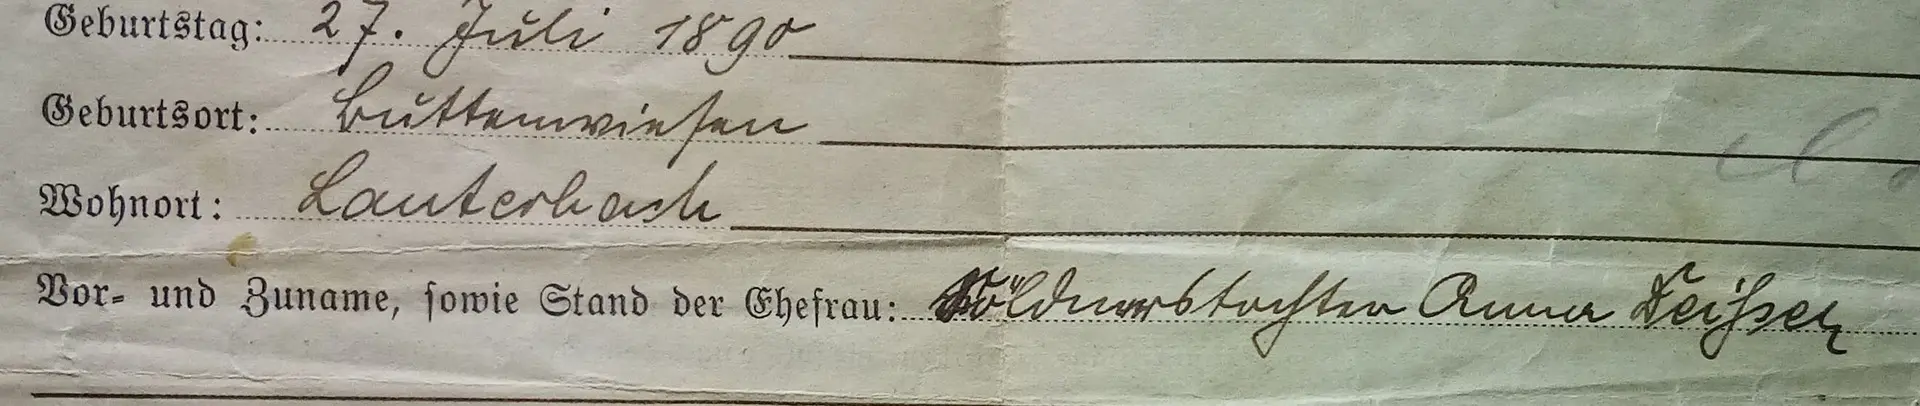 Geburtstag: 27. Juli 1890
Geburtsort: Buttenwiesen
Wohnort: Lauterbach
Vor- und Zuname, sowie Stand der Ehefrau: Söldnerstochter Anna